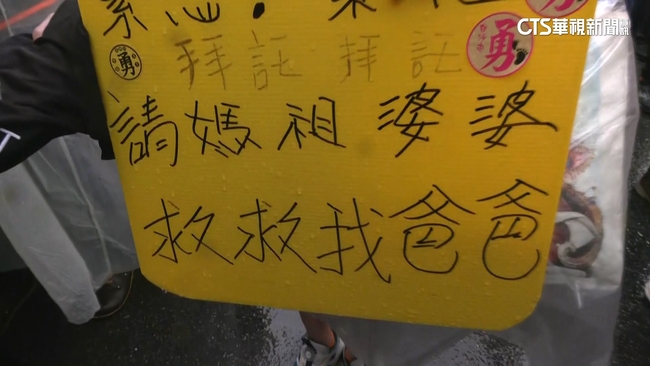 CTS華視新聞網
拜託拜託
勇
勇
請媽祖婆婆
救救我爸爸